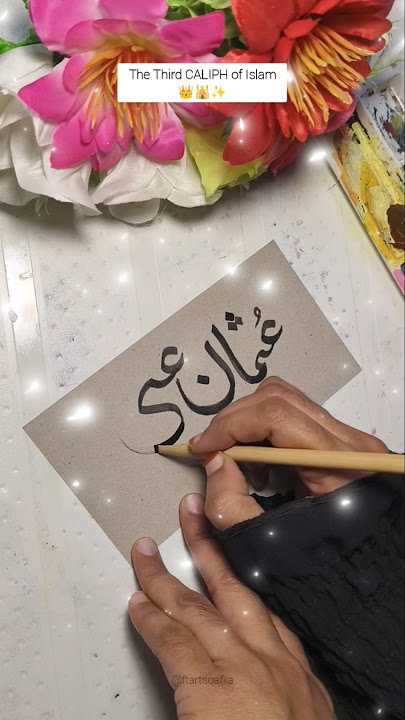 The Third CALIPH of Islam
👑🕌✨
عُثمان
@ftartsqafila